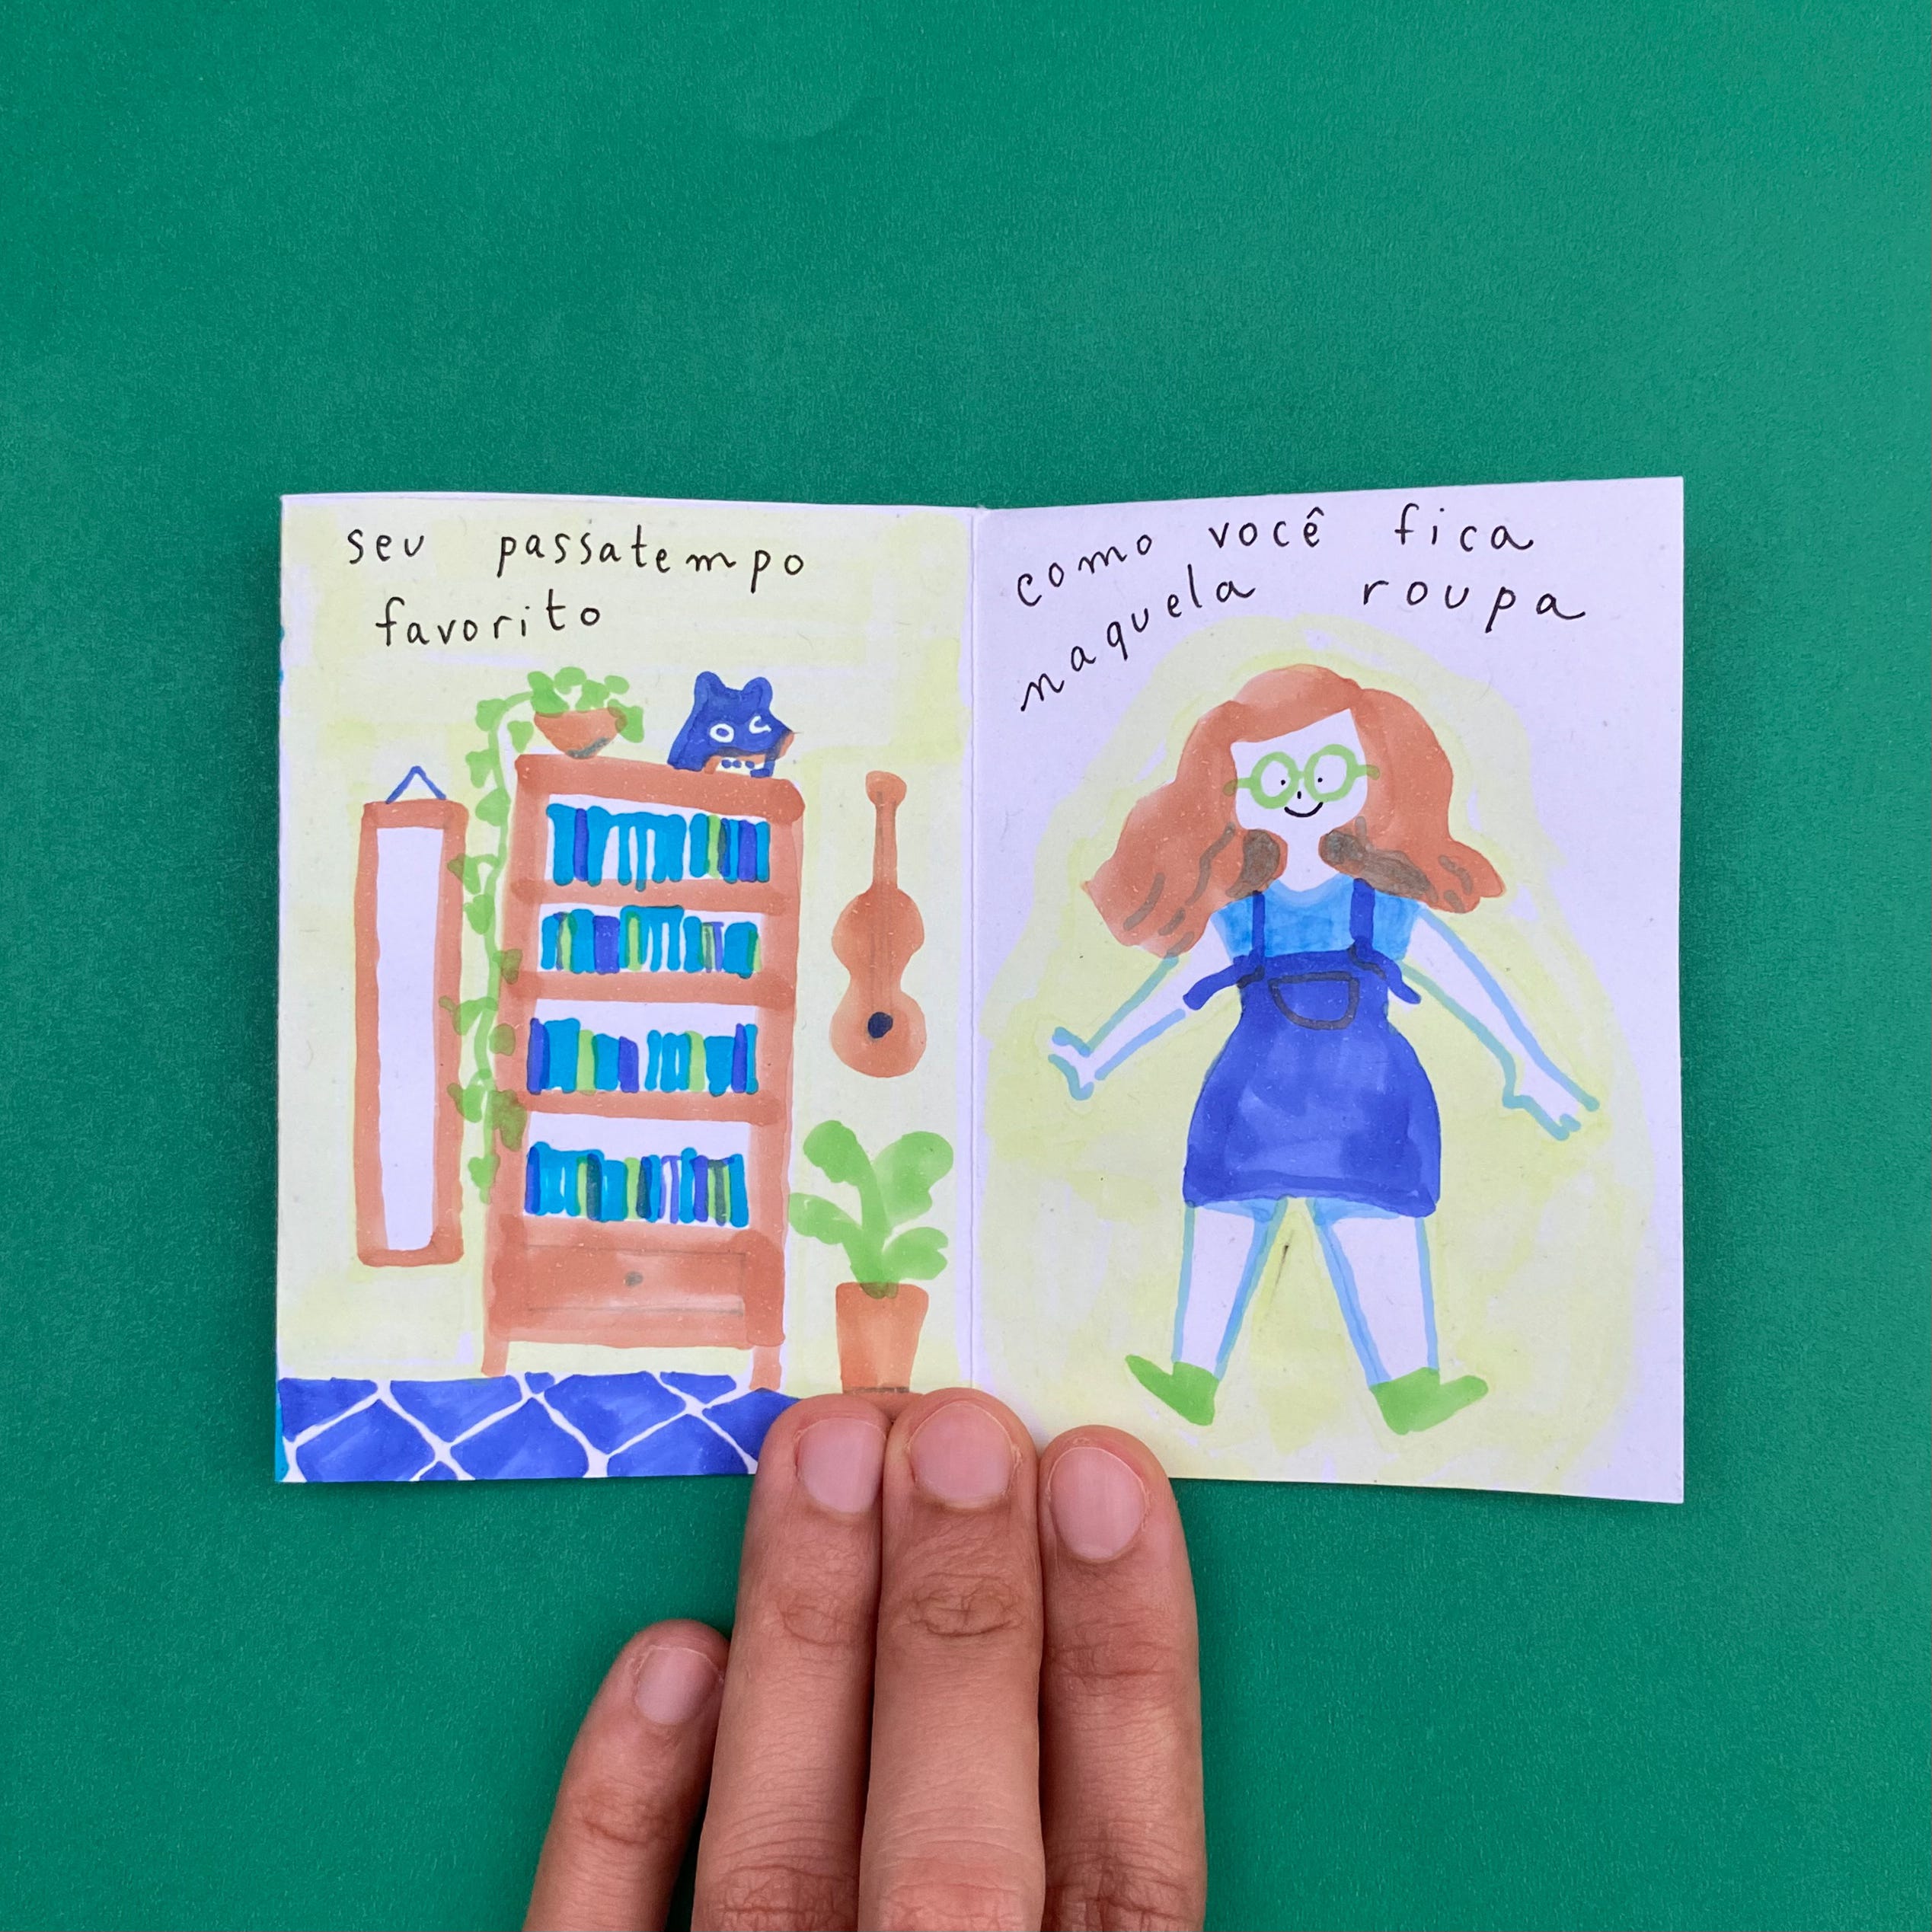 seu passatempo
favorito
como você fica
naquela roupa